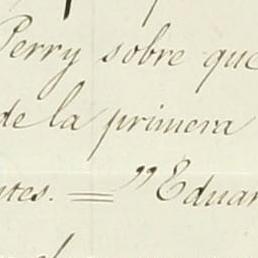 Perry sobre que
de la primera
ntes. = "Eduar